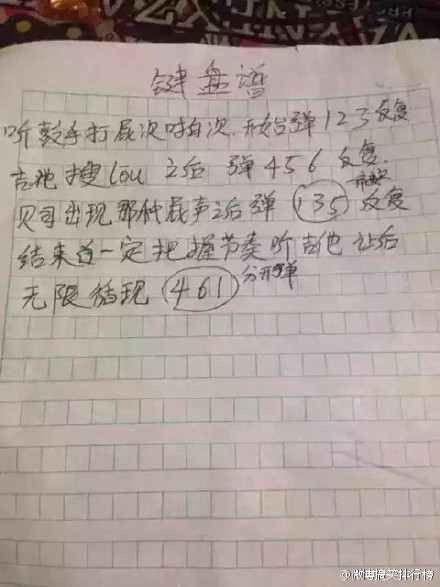 键盘谱
听鼓手打 次 次.开始弹123反复
吉他 搜lou 之后 弹456反复.
贝司出现那种 声之后弹 135 反复
结束首一定把握节奏听吉他 让后
无限循现 461 分开弹
@微博搞笑排行榜